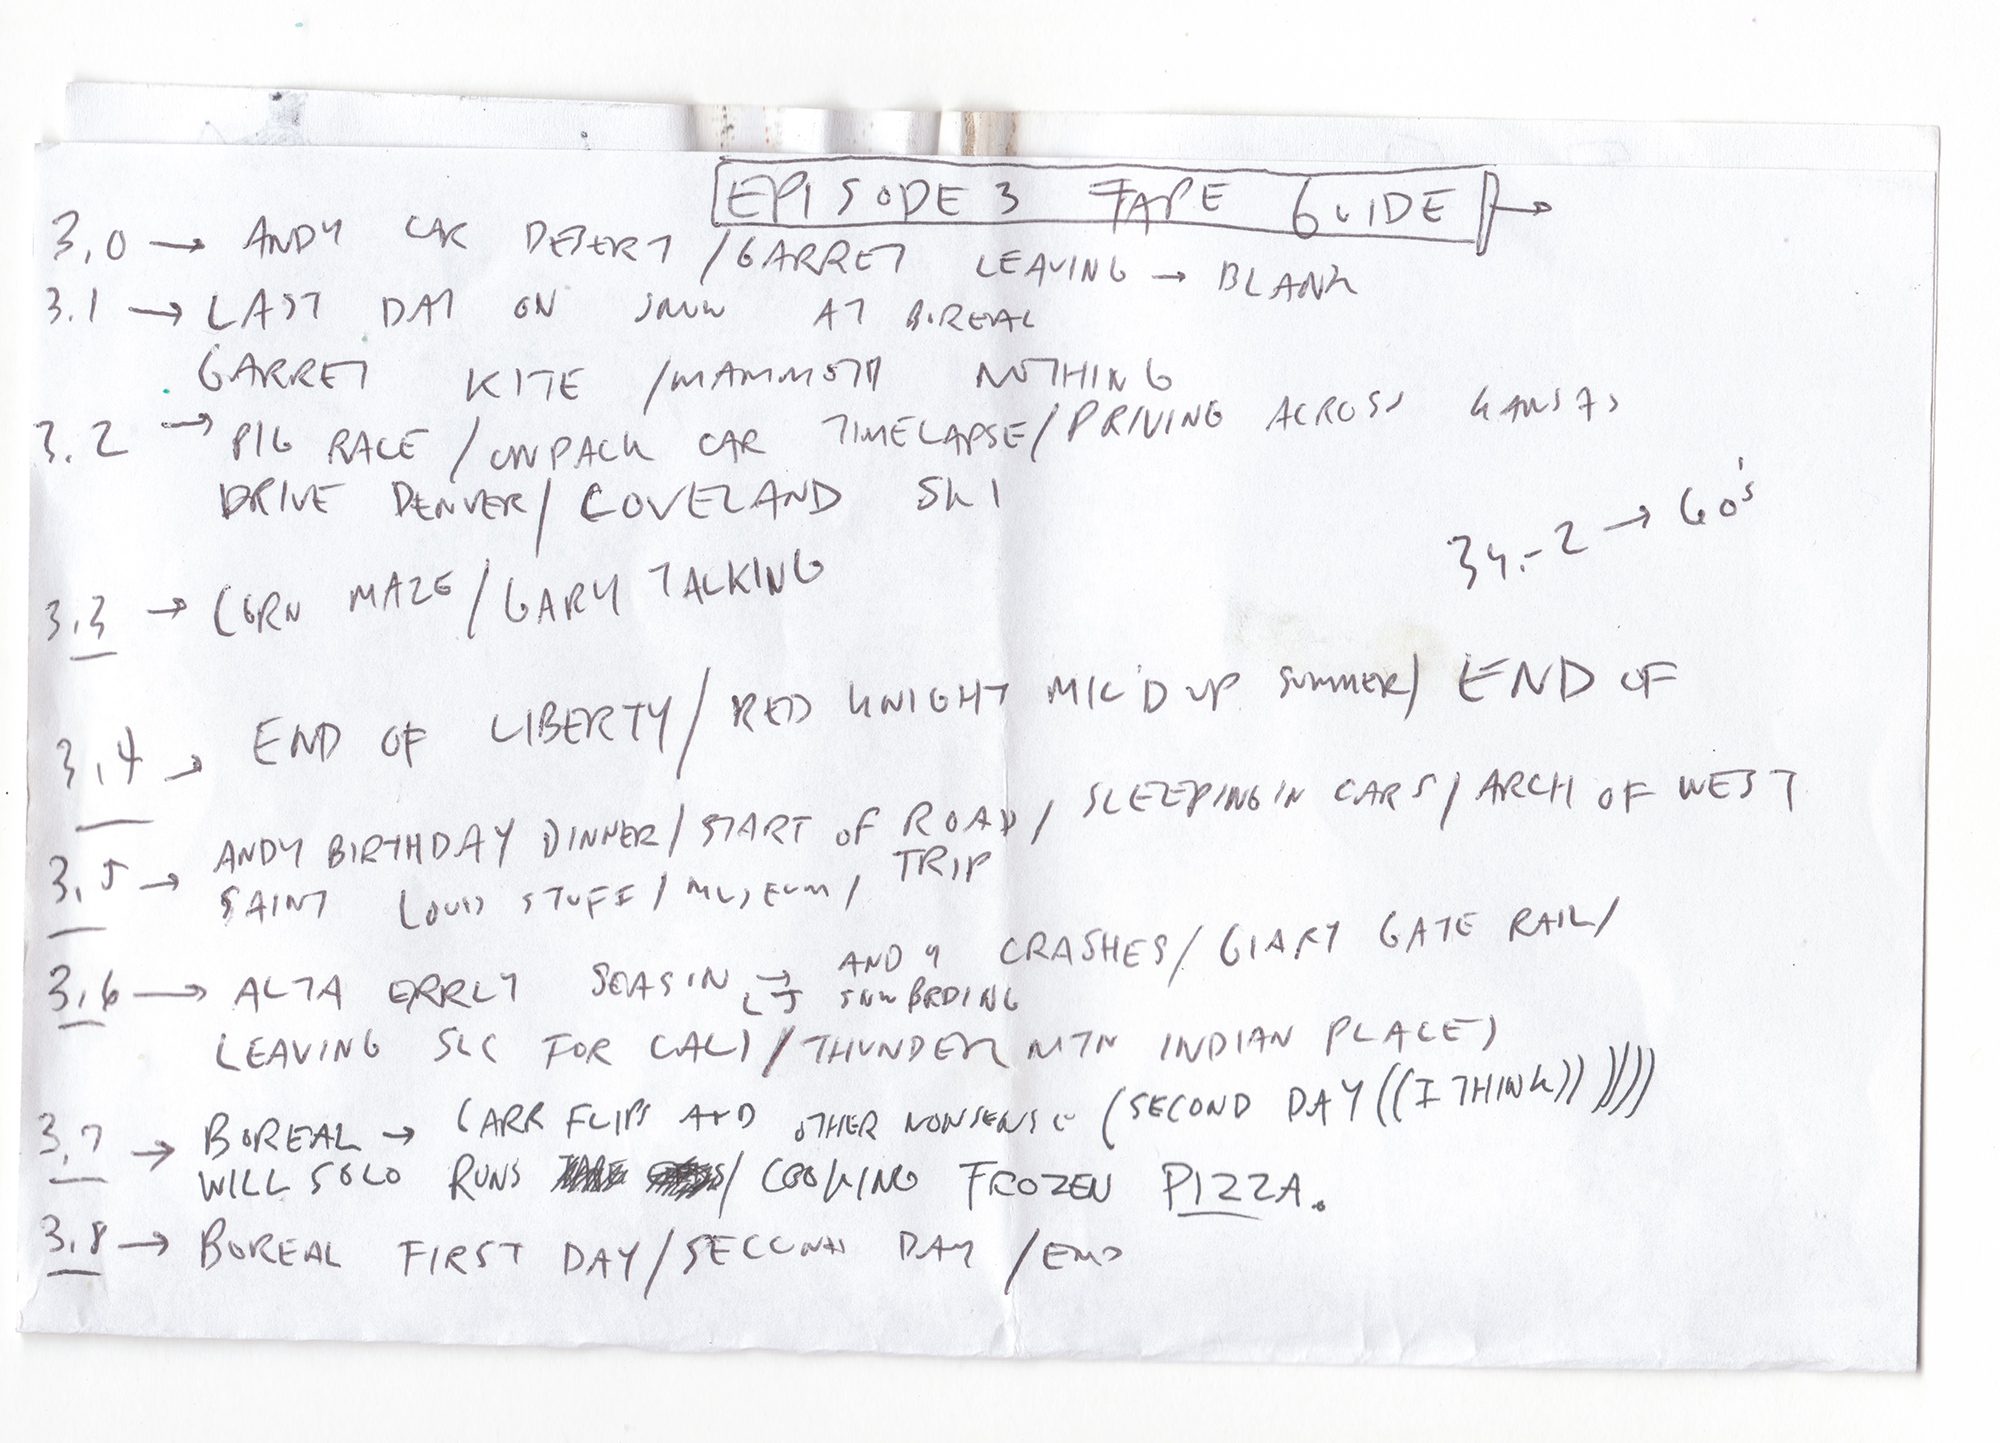 EPISODE 3 TAPE GUIDE →
3.0 → ANDY CAR DESERT / GARRET LEAVING → BLANK
3.1 → LAST DAY ON SNOW AT BOREAL
GARRET KITE / MAMMOTH NOTHING
3.2 → PIG RACE / UNPACK CAR TIMELAPSE / DRIVING ACROSS KANSAS
DRIVE DENVER / LOVELAND SKI
34.-2 → 60's
3.3 → CORN MAZE / GARY TALKING
3.4 → END OF LIBERTY / RED KNIGHT MIC'D UP SUMMER / END OF
3.5 → ANDY BIRTHDAY DINNER / START OF ROAD / SLEEPING IN CARS / ARCH OF WEST
SAINT LOUIS STUFF / MUSEUM / TRIP
3.6 → ALTA ERRLY SEASIN → ANDY CRASHES / GIARY GATE RAIL /
↳ SNWBRDING
LEAVING SLC FOR CALI / THUNDER MTN INDIAN PLACE)
3.7 → BOREAL → CARR FLIPS AND OTHER NONSENSE (SECOND DAY ((I THINK)) )))))
WILL SOLO RUNS / COOKING FROZEN PIZZA.
3.8 → BOREAL FIRST DAY / SECOND DAY / END